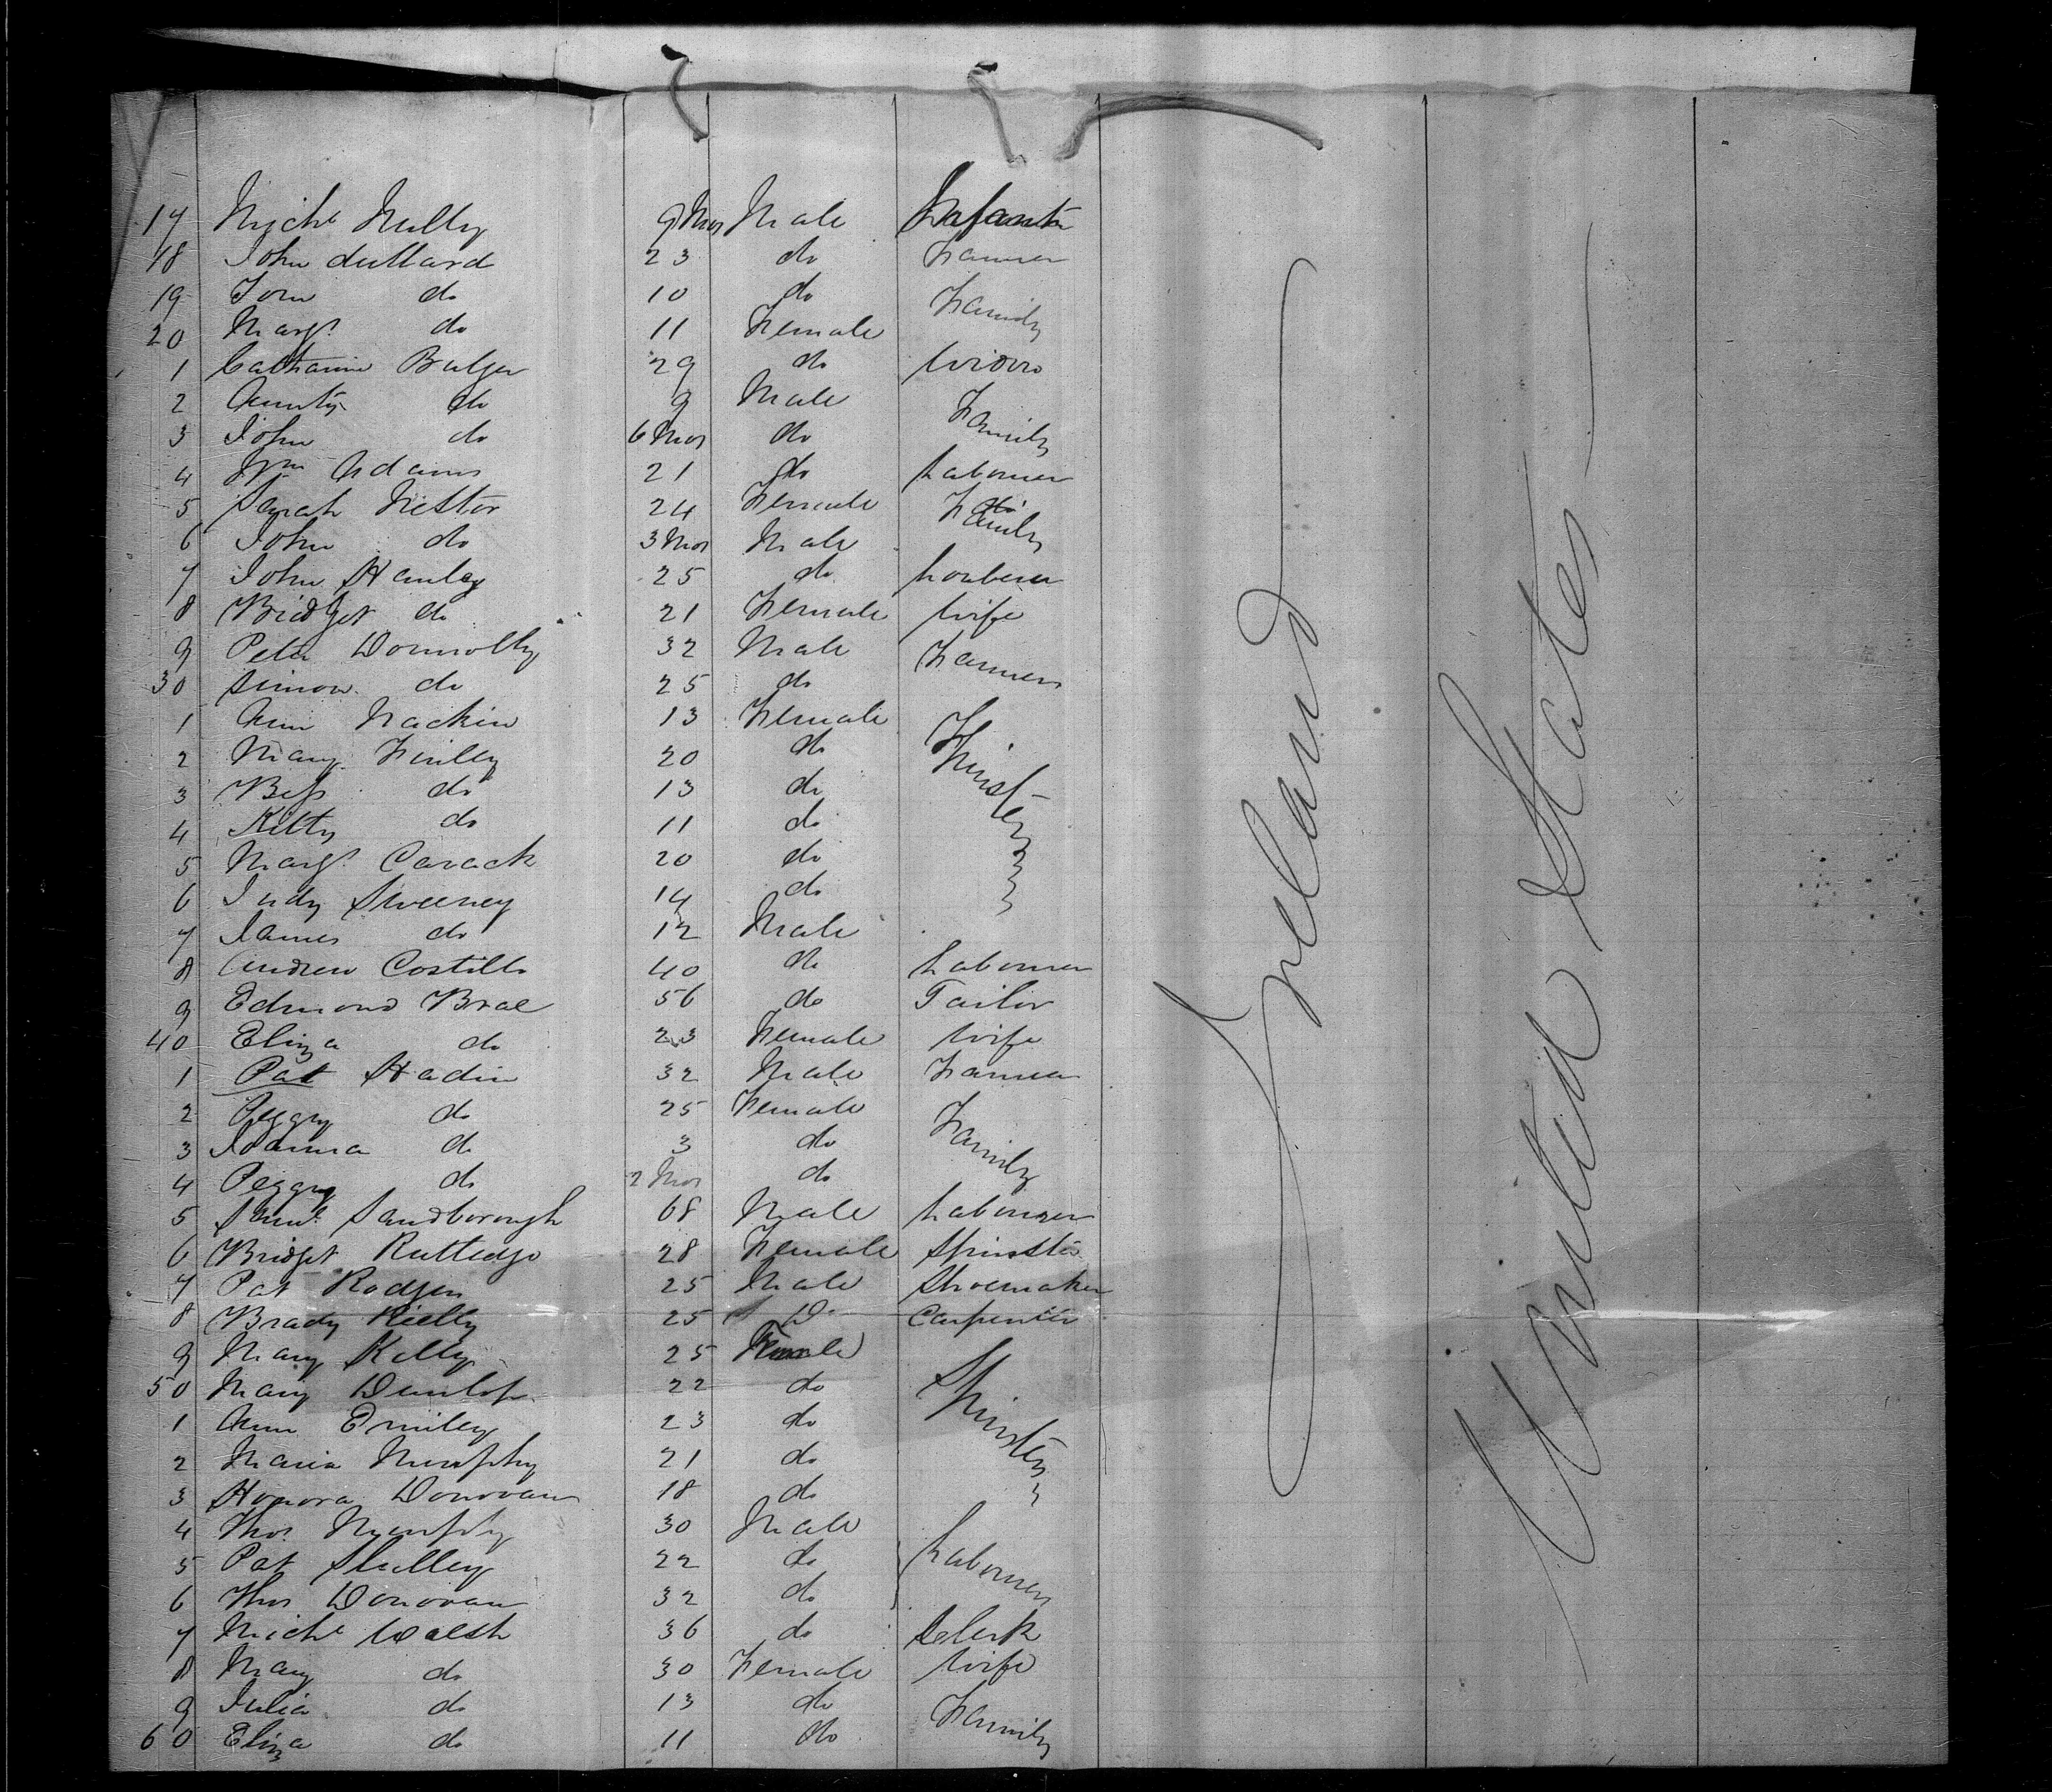 17 Mich.l Nully 9 Mos Male Infant
18 John dullard 23 do Farmer
19 Tom do 10 do Family
20 Marg.t do 11 Female
1 Catharine Bulger 29 do Widow
2 do 9 Male Family
3 John do 6 Mos do
4 Wm Adams 21 do Labourer
5 Sarah Nestor 24 Female Family
6 John do 3 Mos Male
7 John Hanley 25 do
8 Bridget do 21 Female Wife
9 Peter Donnolly 32 Male Farmers
30 Simon do 25 do
1 Ann Mackin 13 Female Spinsters
2 Mary Finlly 20 do
3 Bess do 13 do
4 Kitty do 11 do
5 Marg.t Cavack 20 do
6 Judy Sweeney 14 do
7 James do 12 Male
8 Andrew Costillo 40 do Labourer
9 Edmond Brae 56 do Tailor
40 Eliza do 23 Female Wife
1 Pat Hadin 32 Male Farmer
2 Peggy do 25 Female Family
3 Joanna do 3 do
4 Peggy do 2 Mos do
5 Saml. Sandborough 68 Male Labourer
6 Bridget Rutledge 28 Female Spinster
7 Pat Rodgers 25 Male Shoemaker
8 Brady Rielly 25 Do Carpenter
9 Mary Kelly 25 Female Spinsters
50 Mary Dunlop 22 do
1 Ann Emiley 23 do
2 Maria Murphy 21 do
3 Honora Donovan 18 do
4 Thos Murphy 30 Male Labourers
5 Pat Skulley 22 do
6 Thos Donovan 32 do
7 Mich.l Walsh 36 do Clerk
8 Mary do 30 Female Wife
9 Julia do 13 do Family
60 Eliza do 11 do
Ireland
United States